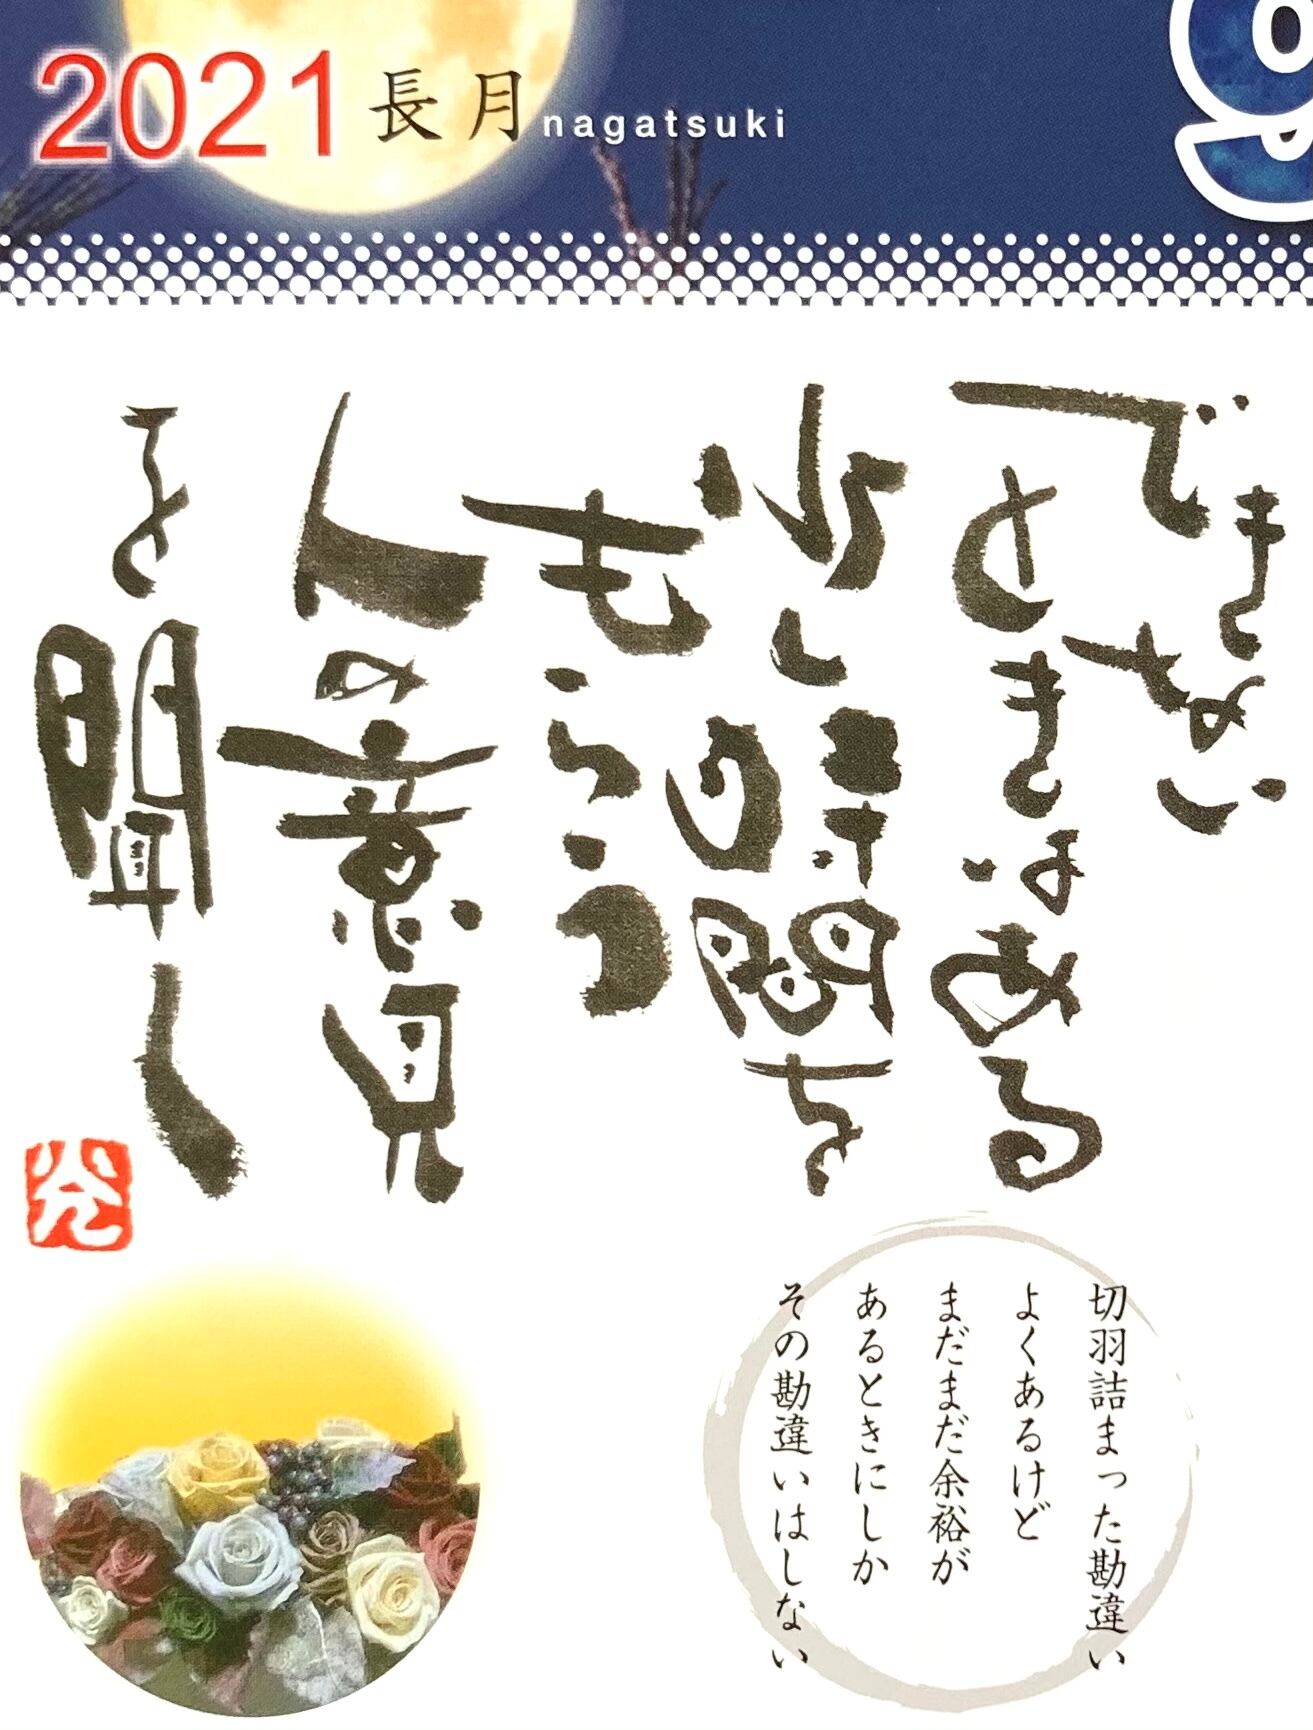 2021 長月 nagatsuki
9
できない
ときはある
少し時間を
もらう
人の意見
を聞く
切羽詰まった勘違い
よくあるけど
まだまだ余裕が
あるときにしか
その勘違いはしない